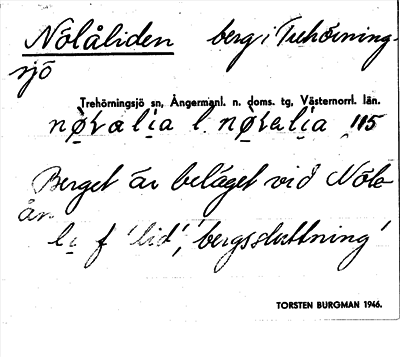 Nölåliden berg i Trehörning-
sjö
Trehörningsjö sn, Ångermanl. n. doms. tg, Västernorrl. län.
nø̣ɩ̣alịa l. nø̣ɩalịa 115
Berget är beläget vid Nöla-
ån
lịa f 'lid', 'bergssluttning'
TORSTEN BURGMAN 1946.